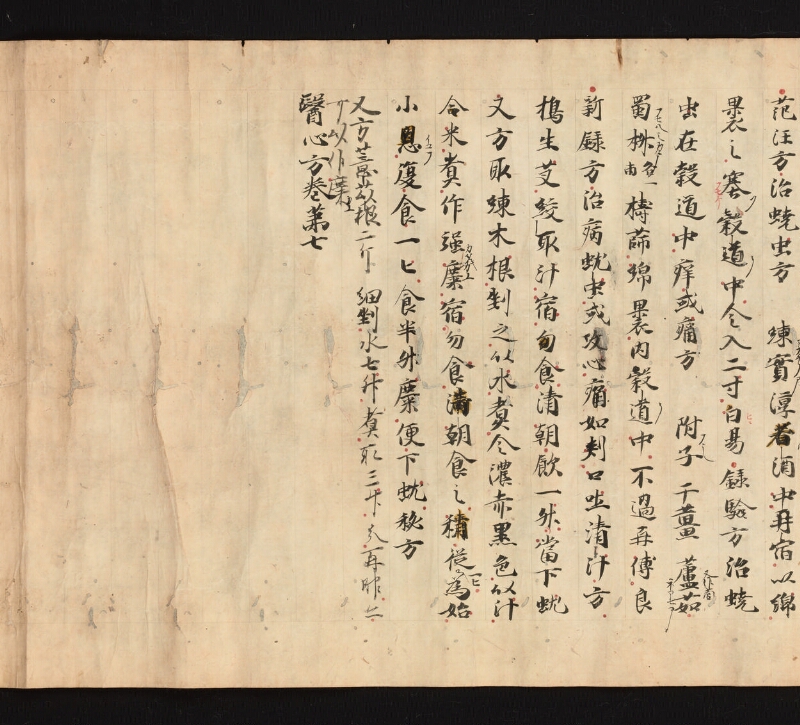 范汪方治蟯虫方 練實淳着酒中再宿以綿
裹之塞穀道中令入二寸白易 録驗方治蟯
虫在穀道中痒或痛方 附子 干薑 蘆茹
蜀椒各一兩擣篩綿裹内穀道中不過再傅良
新録方治病蚘虫或攻心痛如刾口吐清汁方
擣生艾絞取汁宿勿食清朝飲一升當下蚘
又方取練木根剉之以水煮令濃赤黒色以汁
合米煮作強糜宿勿食清朝食之精従為始
小息復食一匕食半升糜便下蚘秘方
又方 根二斤 細剉水七升煮取三升 再服亦
可以作糜
醫心方巻第七